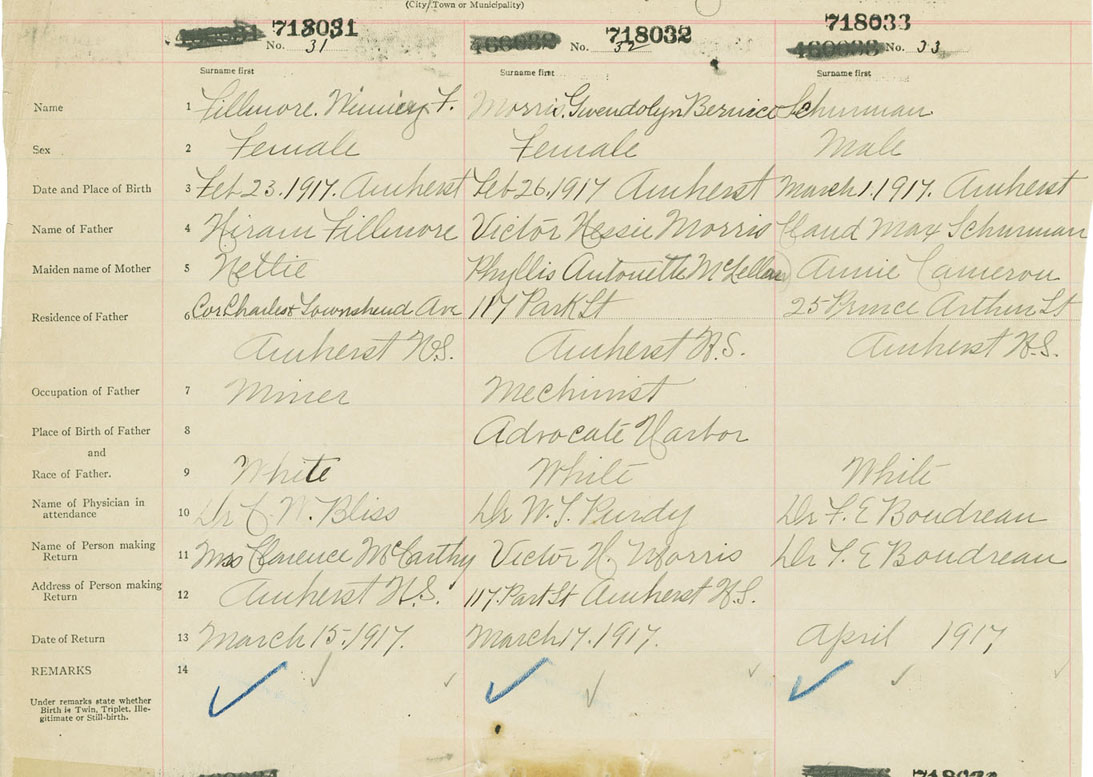 (City, Town or Municipality)
718031 718032 718033
No. 31 No. 32 No. 33
Surname first Surname first Surname first
Name 1 Fillmore. F. Morris. Gwendolyn Bernice Schurman
Sex 2 Female Female Male
Date and Place of Birth 3 Feb 23. 1917. Amherst Feb 26. 1917 Amherst March 1. 1917. Amherst
Name of Father 4 Hiram Fillmore Victor Morris Claud Max Schurman
Maiden name of Mother 5 Nettie Phyllis Antonette McLellan Annie Cameron
Residence of Father 6 Cor Charles & Townshend Ave 117 Park St 25 Prince Arthur St
Amherst N.S. Amherst N.S. Amherst N.S.
Occupation of Father 7 Miner Mechinist
Place of Birth of Father 8 Advocate Harbor
and
Race of Father. 9 White White White
Name of Physician in
attendance 10 Dr C. W. Bliss Dr W. T. Purdy Dr F. E Boudreau
Name of Person making
Return 11 Mrs Clarence McCarthy Victor H. Morris Dr F. E Boudreau
Address of Person making
Return 12 Amherst N.S. 117 Park St Amherst N.S.
Date of Return 13 March 15. 1917. March 17. 1917. April 1917
REMARKS 14
Under remarks state whether
Birth is Twin, Triplet, Ille-
gitimate or Still-birth.